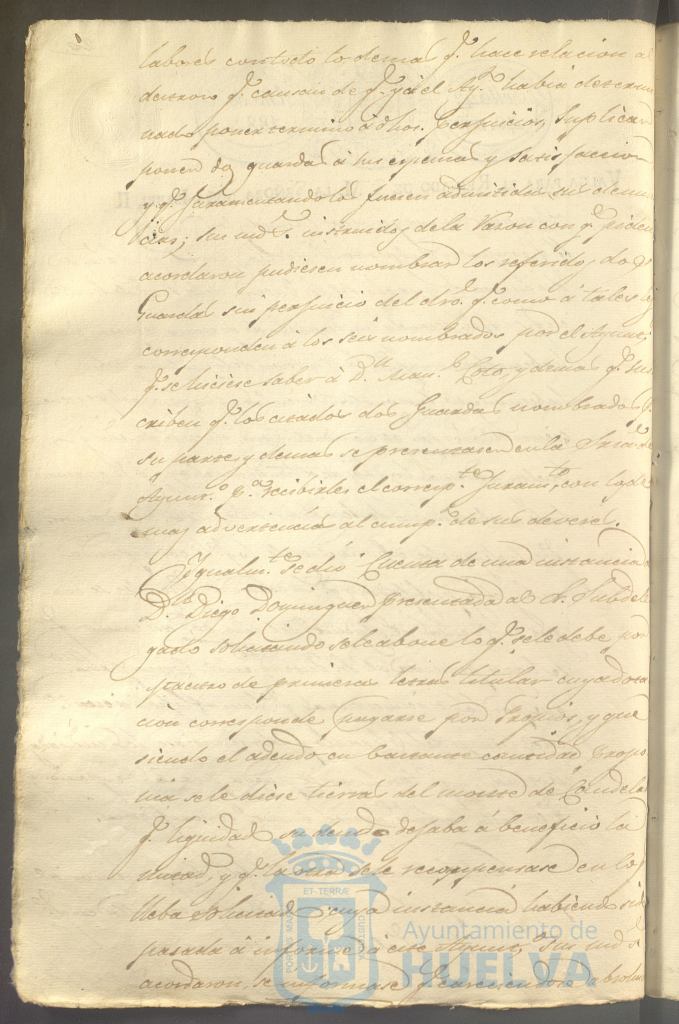 labores contodo lo demas q.e hace relacion al
destrozo q.e causan de q.e ya el Ay.to habia determi
nado poner termino á dhos. perjuicios, suplican
poner dos guardas á sus espensas y satisfaccion
y q.e juramentandolos fuesen admitidas sus denun
cias; sus md.s instruidos de la razon con q.e piden
acordaron pudiesen nombrar los referidos dos
Guardas sin perjuicio del dro. q.e como á tales
corresponden á los seis nombrados por el Ayunt.
q.e se hiciese saber á D.n Man.l y demas q.e sus
criben q.e los citados dos Guardas nombrados p.
su parte y demas se presentasen en la Sria. de
Ayunt.o p.a recibirles el corresp.te Juram.to con las de
mas advertencias al cump.to de sus deveres.
Ygualm.te se dió Cuenta de una instancia
D.n Diego Dominguez presentada al S. Subdele
gado solicitando se le abone lo q.e se le debe por
maestro de primeras letras titular cuya dota
cion corresponde pagarse por Propios, y que
siendo el adeudo en bastante cantidad propo
nia se le diese tierras del monte de
q.e liquidada su deuda dejaba á beneficio la
mitad, y q.e la otra se le recompensase en los
cuya instancia habiendo sido
pasada á informe á este Ayunt., Sus md.s
acordaron se informase q.e careciendose
ET-TERRÆ
Ayuntamiento de
HUELVA